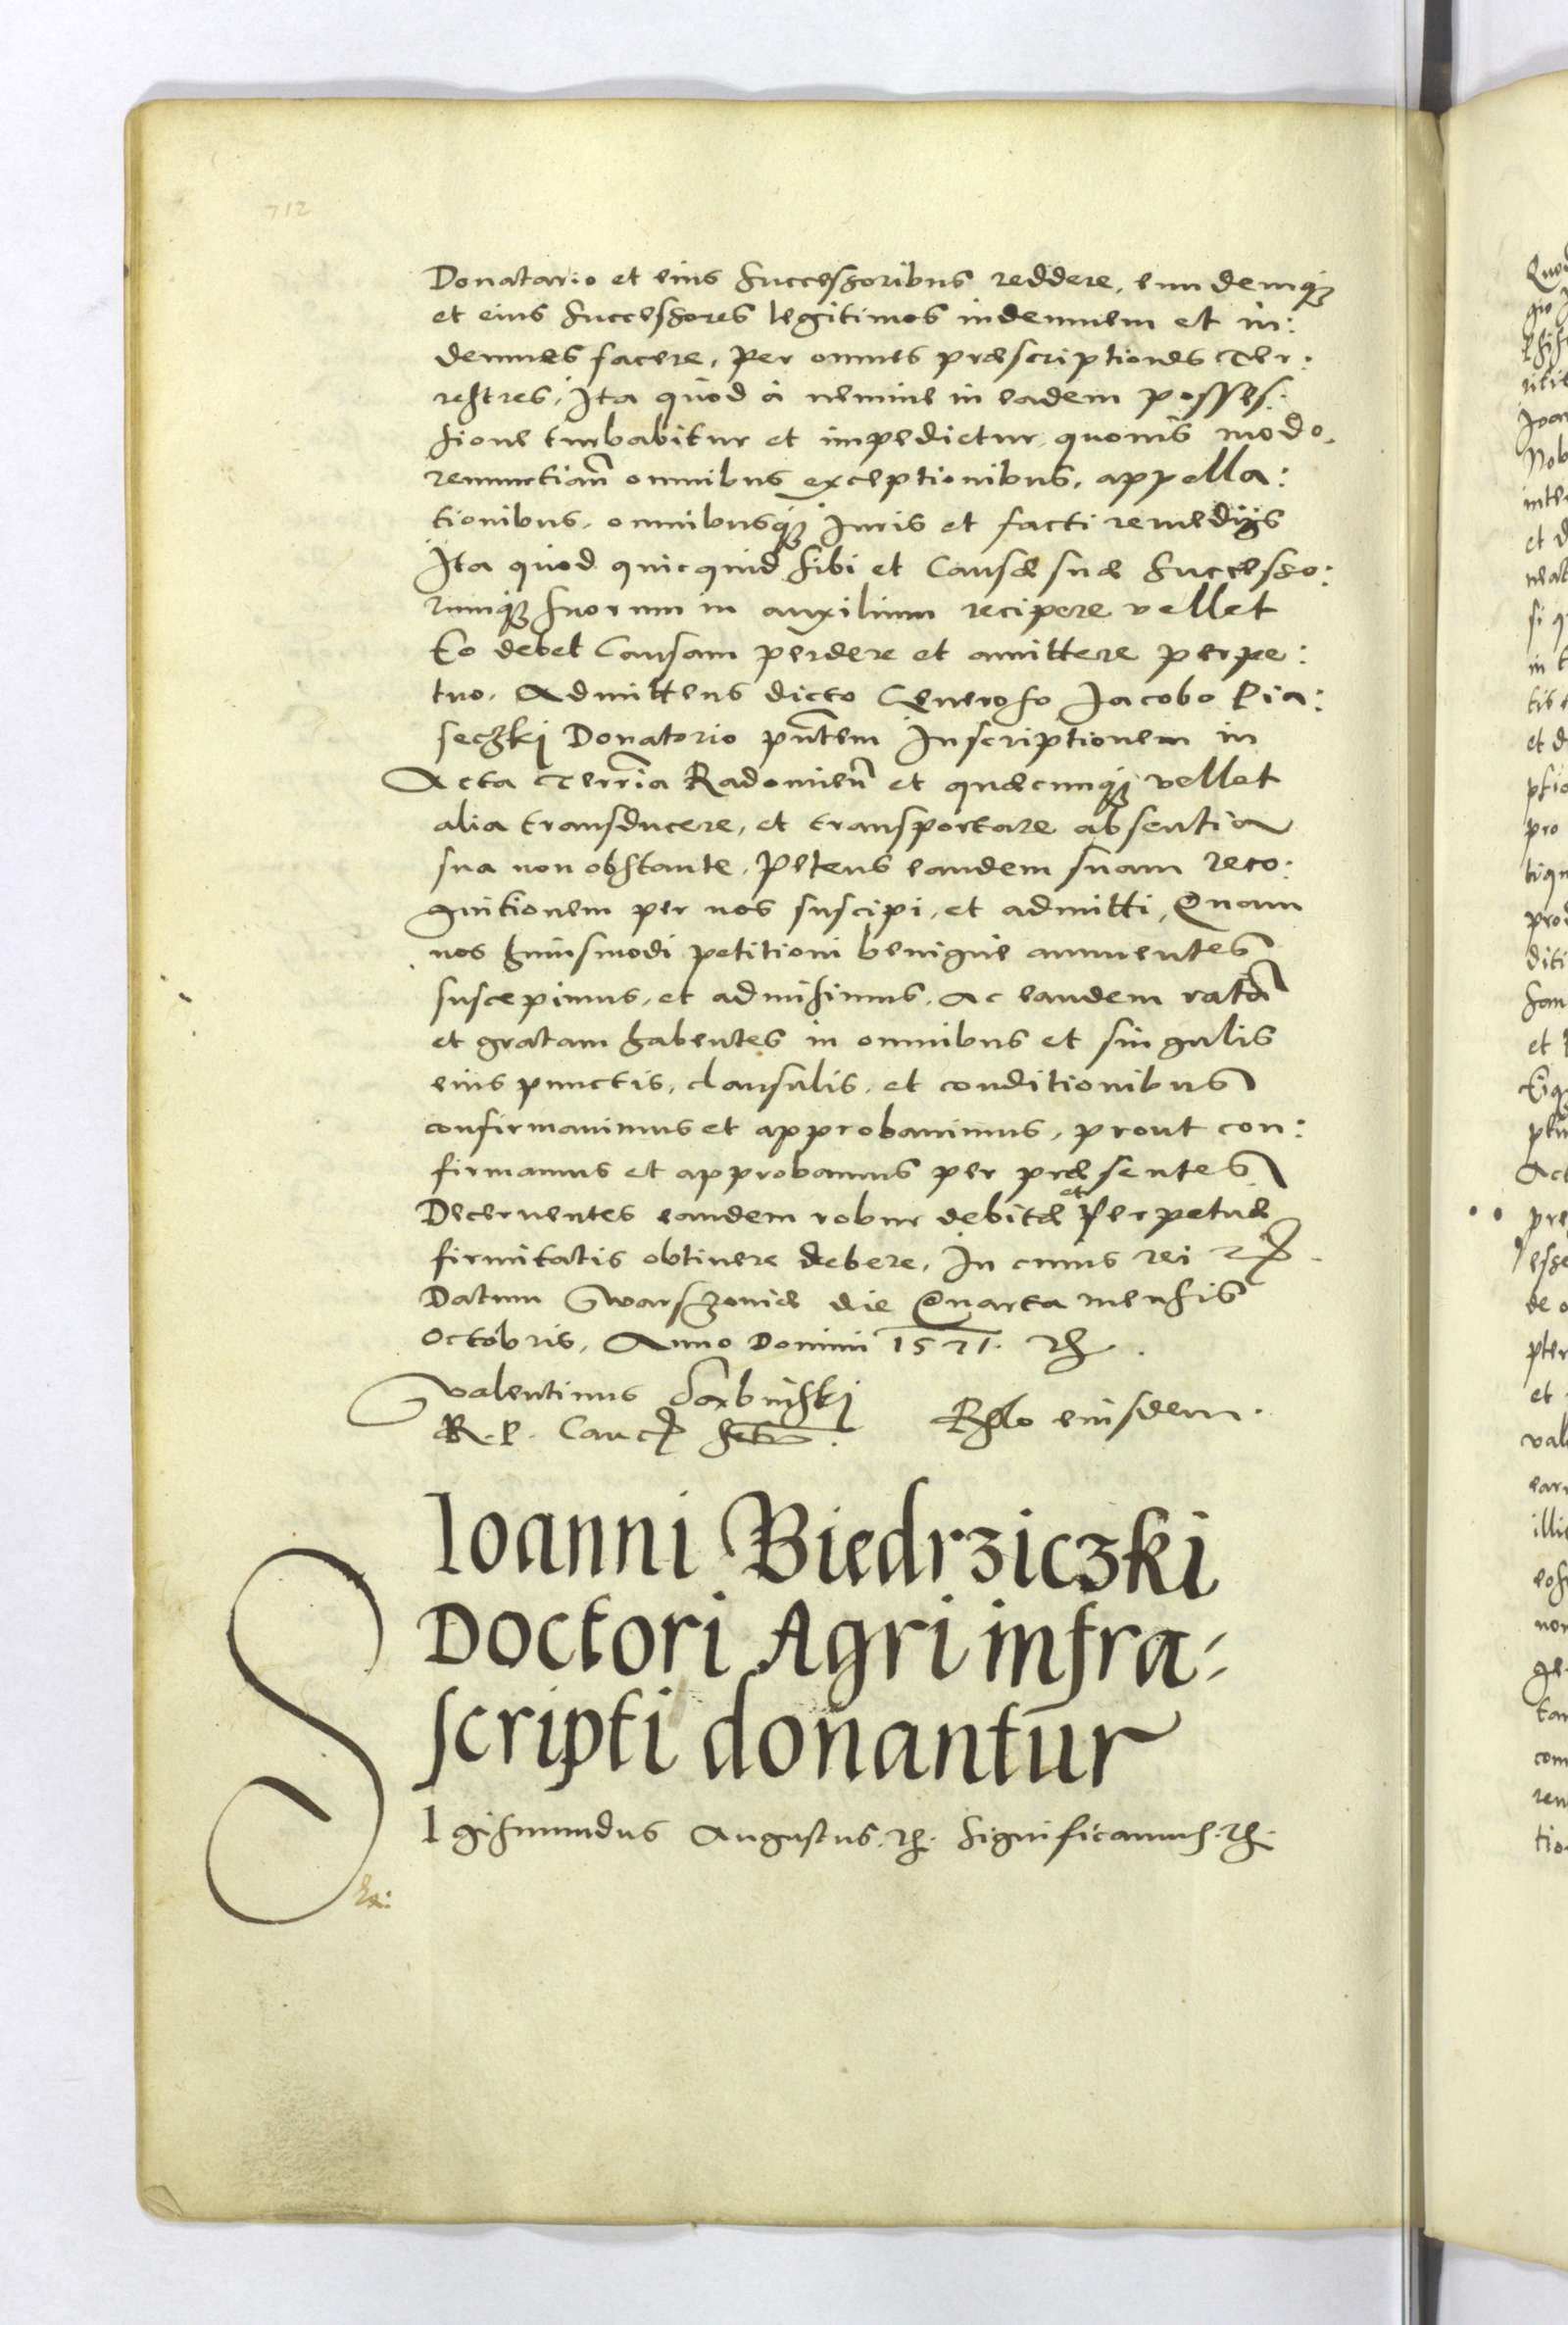 712
Donatario et eius Successoribus reddere, eundemq3
et eius Successores legitimos indemnem et in:
demnes facere, Per omnes præscriptiones Ter:
restres, Ita quod à nemine in eadem posses:
sione turbabitur et impedietur quouis modo.
renunctian̄ omnibus exceptionibus, appella:
tionibus, omnibusq3 Iuris et facti remedijs
Ita quod quicquid sibi et Causæ suæ Successo:
rumq3 suorum in auxilium recipere vellet
Eo debet Causam perdere et amittere perpe:
tuo. Admittens dicto Generoso Iacobo Pia:
seczkj Donatorio pn̄tem Inscriptionem in
Acta Terr̄ia Radomien̄ et quæcunq3 vellet
alia transducere, et transportare absentia
sua non obstante. Petens eandem suam reco:
gnitionem per nos suscipi, et admitti, Quam
nos huiusmodi petitioni benigne annuentes
suscepimus, et admisimus. Ac eandem ratā
et gratam habentes in omnibus et singulis
eius punctis, clausulis, et conditionibus
confirmauimus et approbauimus, prout con:
firmamus et approbamus per præsentes
Decernentes eandem robur debitæ et Perpetuæ
firmitatis obtinere debere, In cuius rei
Datum Warszouiæ die Quarta mensis
Octobris, Anno Domini 1571.
Valentinus Dąbinskj
R. P. Canc
Rɫlo eiusdem.
Ioanni Biedrziczki
Doctori Agri infra-
scripti donantur
SIgismundus Augustus. ꝛc. Significamus. ꝛc.